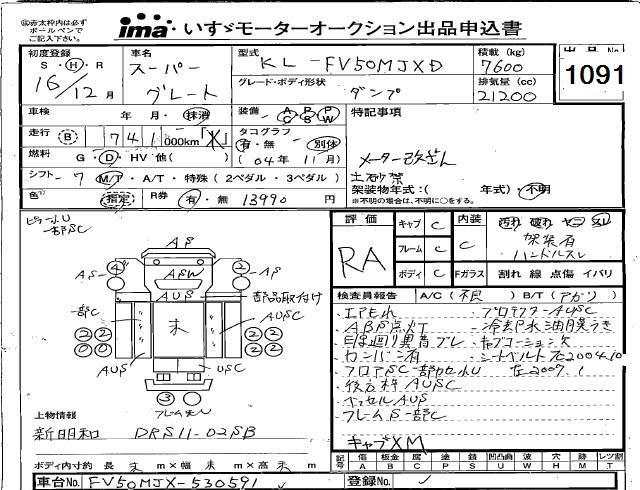 ※赤太枠内は必ず
ボールペンで
ご記入下さい。
ima いすゞモーターオークション出品申込書
初度登録
S・H・R
16/12月
車名
スーパー
グレート
型式
KL-FV50MJXD
グレード・ボディ形状
ダンプ
積載 (kg)
7600
排気量 (cc)
21200
出品 No
1091
車検 年 月・抹消
装備 AC PS PW
特記事項
走行 B 741,000km「X」
タコグラフ
有・無 別体
(04年11月)
メーター改ざん
燃料 G・D・HV・他( )
シフト 7 M/T・A/T・特殊(2ペダル・3ペダル)
土砂禁
架装物年式:( 年式)・不明
※不明の場合は、不明に○をする。
色 指定 R券 有・無 13990 円
評価
RA
キャブ C
フレーム C
ボディ C
内装 C
Fガラス
汚れ 破れ ヤニ スレ
架装有
ハンドルスレ
割れ 線 点傷 イバリ
一部SC
AS
4
2
AS
AS
ASW
AUS
部品取付け
一部C
AUSC
未
2 2
0 0
2 2
2 2
AUS
USC
3
検査員報告 A/C(不良) B/T(アガリ)
・エアもれ
・ABS点灯
・冷却水油膜うき
・シートベルト左2004.10
右2007.1
・フロアSC一部
・後方枠AUSC
・キャブコーションX
・フレームS一部C
キャブXM
上物情報
新明和 DRS11-02SB
ボディ内寸約 長 未 m×幅 未 m×高 未 m
記号 傷 A 板金 B 腐 C 塗 P 錆 S 凹凸曲 U 波 W 穴 H 跡 M レツ割 T
車台No. FV50MJX-530591
登録No.